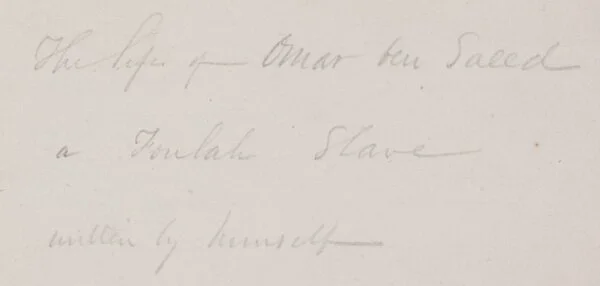 The life of Omar ben Saeed
a Foulah Slave
written by himself